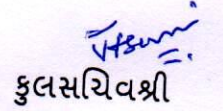 કુલસચિવશ્રી